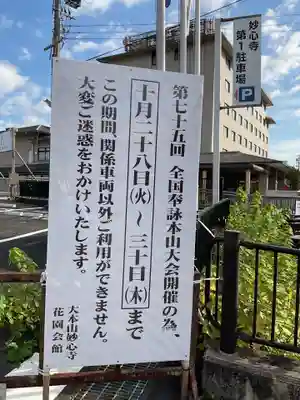 妙心寺
第1駐車場
P
第七十五回 全国奉詠本山大会開催の為、
十月二十八日㈫～三十日㈭まで
この期間、関係車両以外ご利用ができません。
大変ご迷惑をおかけいたします。
大本山妙心寺
花園会館